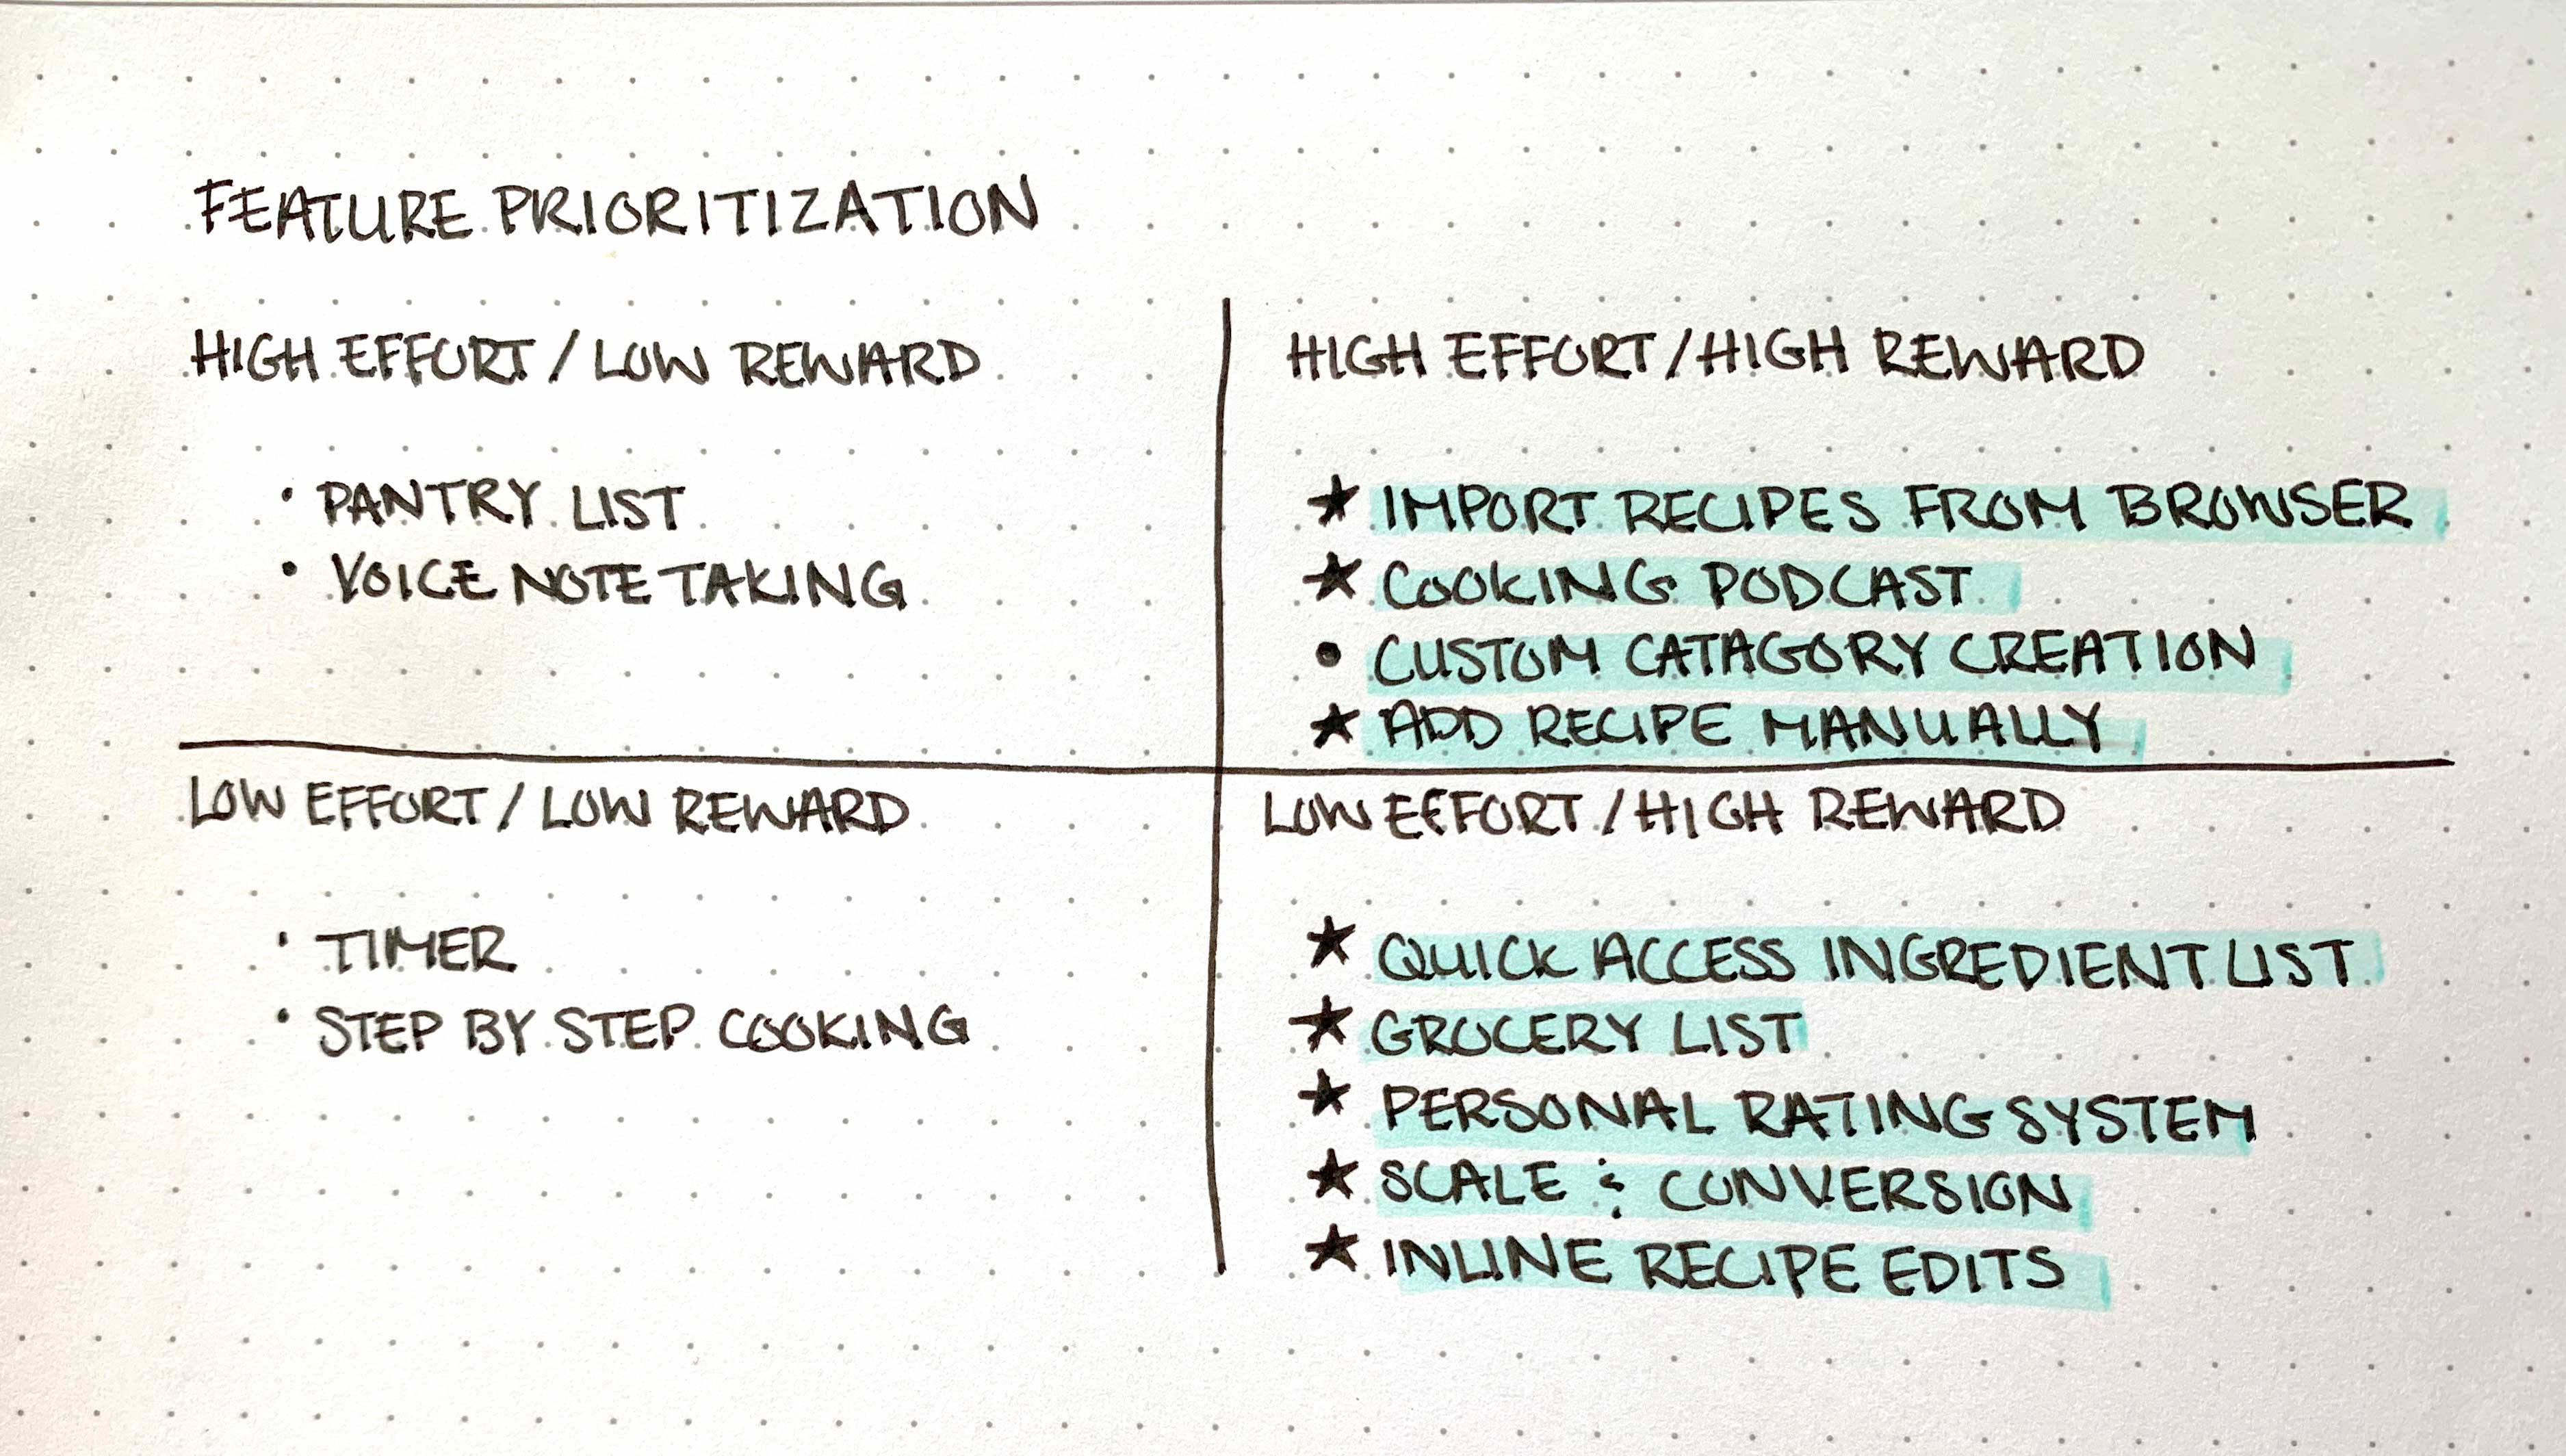 FEATURE PRIORITIZATION
HIGH EFFORT / LOW REWARD
• PANTRY LIST
• VOICE NOTE TAKING
HIGH EFFORT / HIGH REWARD
★ IMPORT RECIPES FROM BROWSER
★ COOKING PODCAST
• CUSTOM CATAGORY CREATION
★ ADD RECIPE MANUALLY
LOW EFFORT / LOW REWARD
• TIMER
• STEP BY STEP COOKING
LOW EFFORT / HIGH REWARD
★ QUICK ACCESS INGREDIENT LIST
★ GROCERY LIST
★ PERSONAL RATING SYSTEM
★ SCALE & CONVERSION
★ INLINE RECIPE EDITS